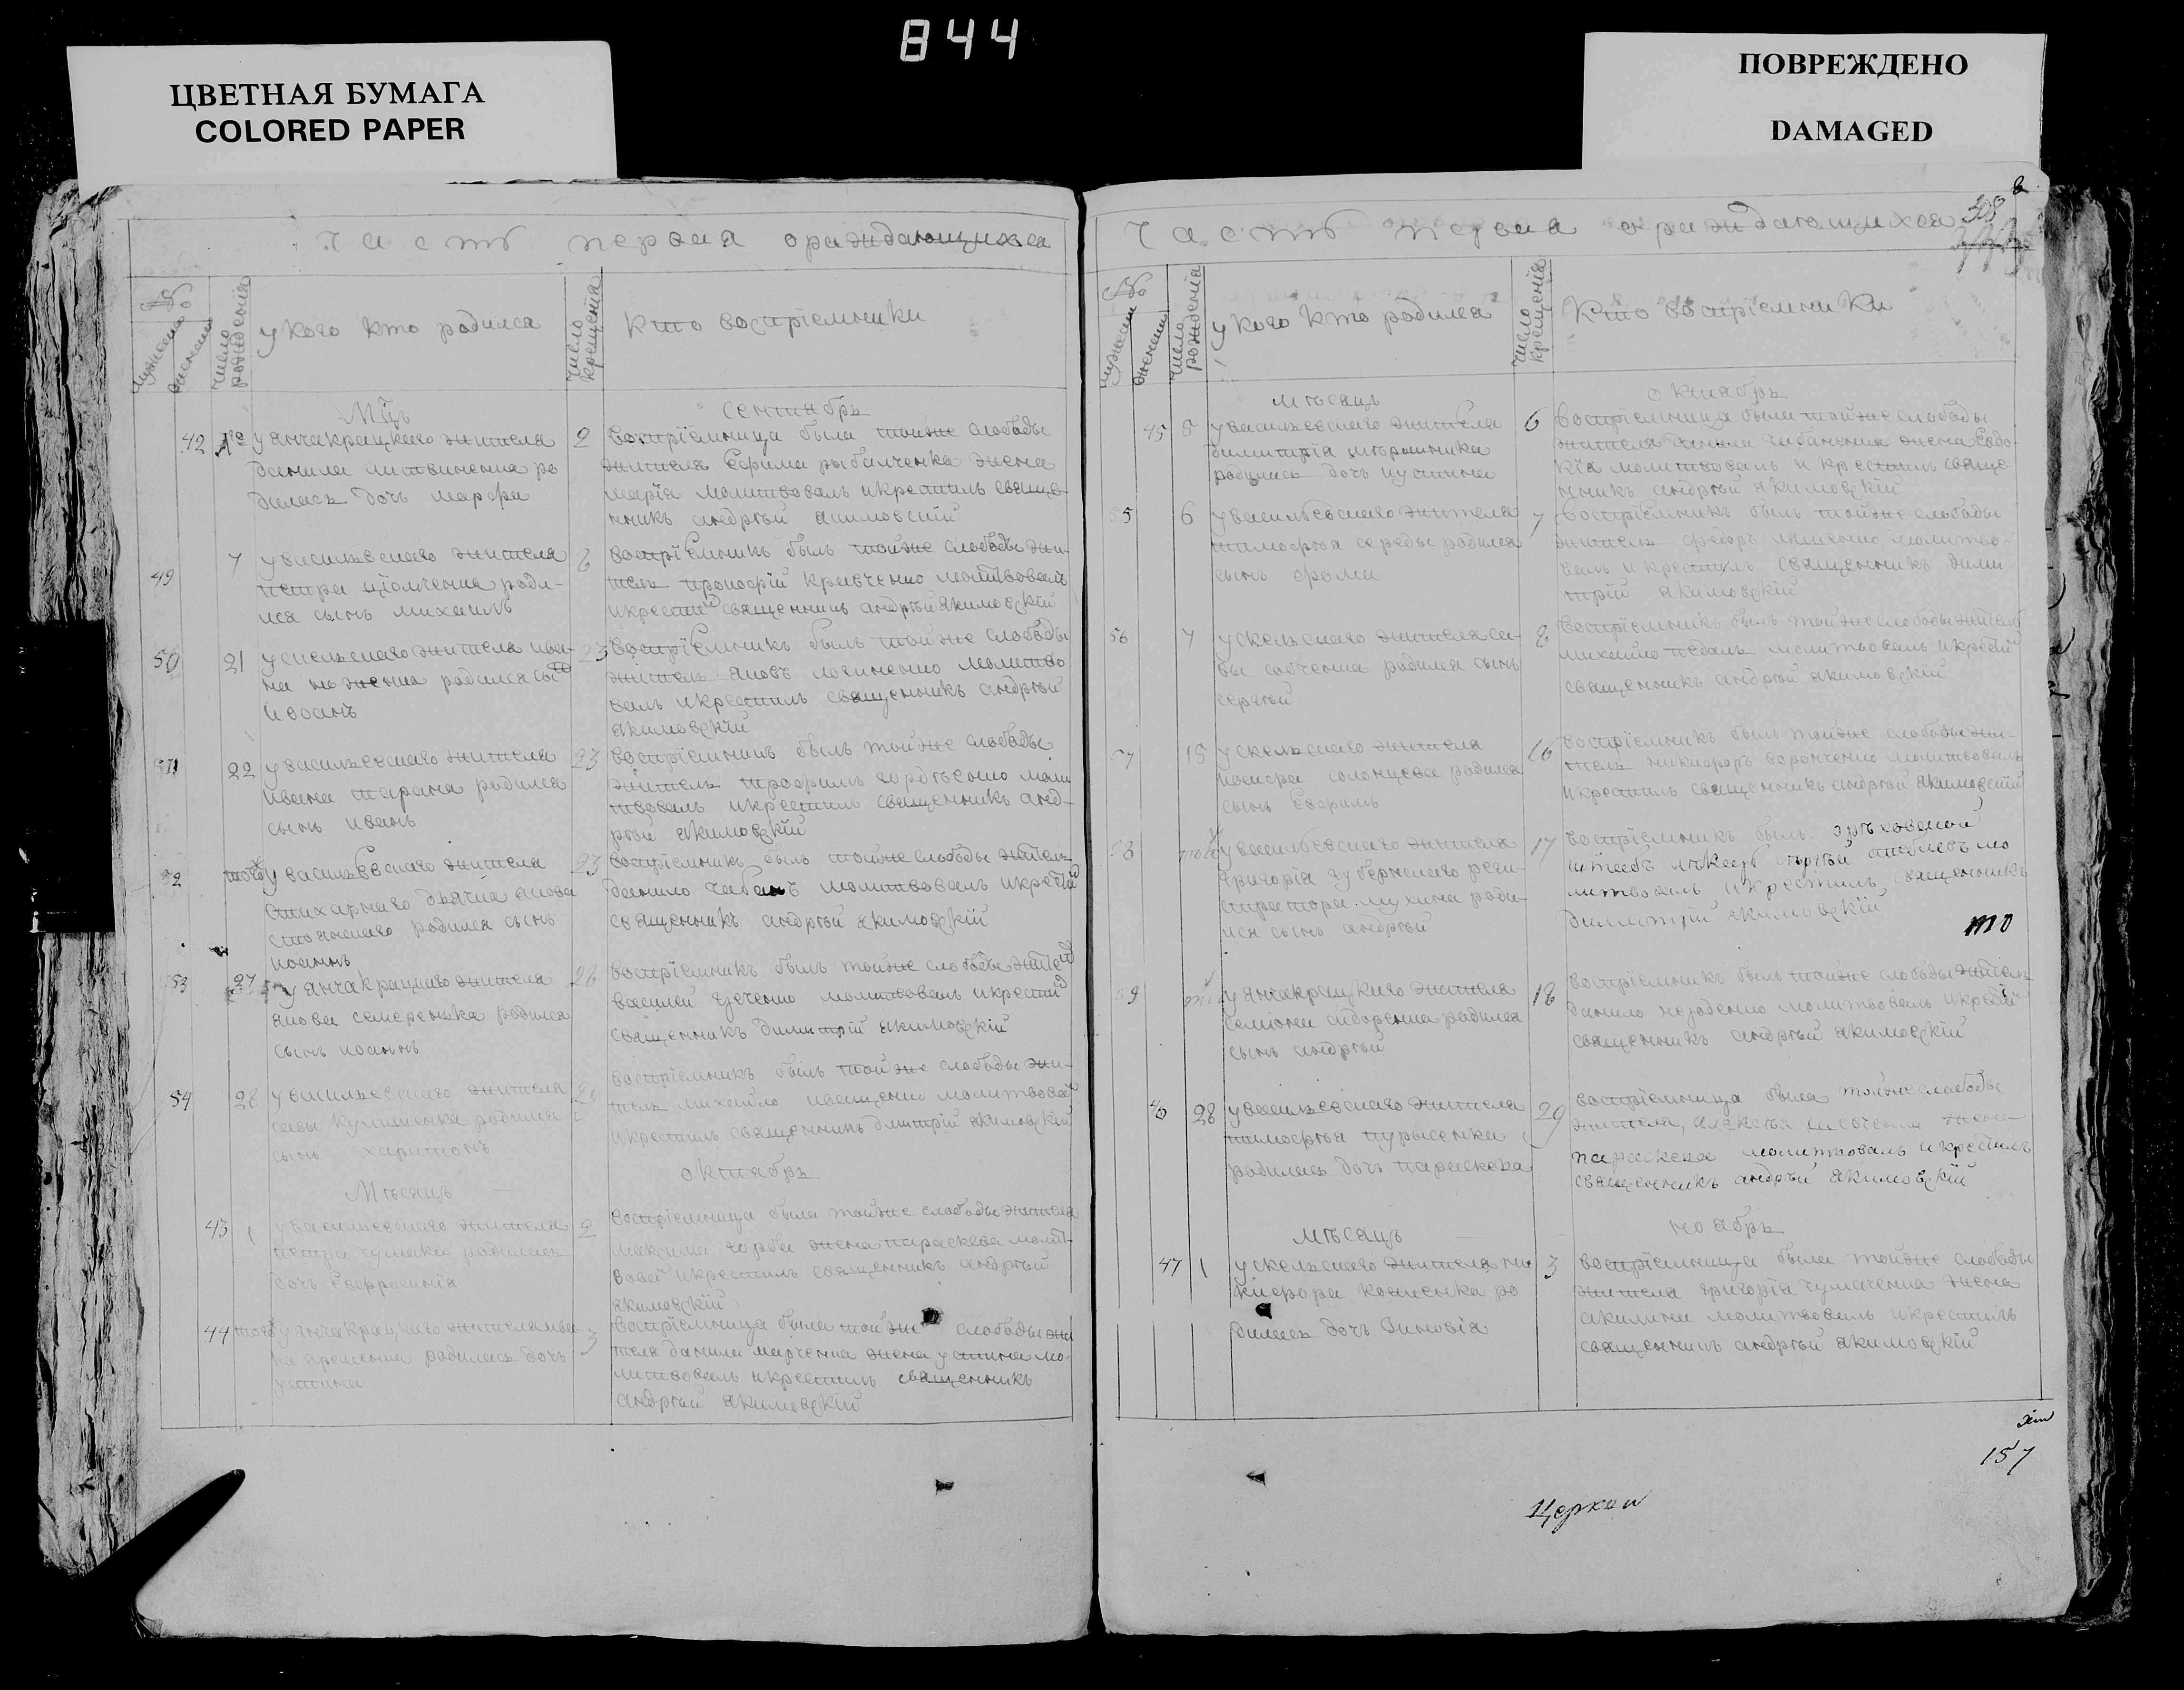 844
ЦВЕТНАЯ БУМАГА
COLORED PAPER
ПОВРЕЖДЕНО
DAMAGED
часть первая ораждающихся
№
мужеска
женска
число рождения
у кого кто родился
число крещения
кто воспріемники
Мцъ
сентябрь
42 1го 2
у янчакрацкаго жителя
данила литвиненка ро
дилась дочь марфа
воспріемница была тойже слободы
жителя Ефрима рыбалченка жена
марія молитвовалъ и крестилъ священ-
нникъ андрѣй якимовскій
49 7 8
у васильевскаго жителя
петра роди-
лся сынъ михаилъ
воспріемникъ былъ тойже слободы жи-
тель прокофій кравченко молитвовалъ
и крестил священникъ андрѣй якимовскій
50 21 23
у скельскаго жителя ива-
на родился сын
іоаннъ
воспріемникъ былъ тойже слободы
житель яковъ логиненко молитво
валъ и крестилъ священникъ андрѣй
якимовскій
51 22 23
у васильевскаго жителя
ивана тарана родился
сынъ иванъ
воспріемникъ былъ тойже слободы
житель трофимъ гордѣенко моли
твовалъ и крестилъ священникъ анд-
рѣй якимовскій
52 тогож 23
у васильевскаго жителя
стихарнаго дьячка якова
стоянскаго родился сынъ
иоаннъ
воспріемникъ былъ тойже слободы житель
данило чабанъ молитвовалъ и крестил
священникъ андрѣй якимовскій
53 27 28
у янчакрацкаго жителя
якова семеренка родился
сынъ иоаннъ
воспріемникъ былъ тойже слободы жител
василей молитвовалъ и крестил
священникъ димитрій якимовскій
54 28 29
у васильевскаго жителя
савы кулишенка родился
сынъ харитонъ
воспріемникъ былъ тойже слободы жи-
тель михайло иващенко молитвовал
и крестилъ священникъ дмитрій якимовскій
Мѣсяцъ
октябрь
43 1 2
у васильевскаго жителя
петра чумака родилась
дочь Евфросинія
воспріемница была тойже слободы жителя
максима горба жена параскева молит-
вовал и крестилъ священникъ андрѣй
якимовскій
44 тогож 3
у янчакрацкаго жителя ива
на яременка родилась дочь
устина
воспріемница была тойже слободы жи
теля данила марченка жена устина мо-
литвовалъ и крестилъ священникъ
андрѣй якимовскій
часть первая ораждающихся
308
№
мужеска
женска
число рожденія
у кого кто родился
число крещенія
кто воспріемники
мѣсяцъ
октябрь
45 5 6
у васильевскаго жителя
димитрія мѣрошника
родилась дочь иустина
воспріемница была тойже слободы
жителя чабаненка жена Евдо-
кія молитвовалъ и крестилъ свяще-
нникъ андрѣй якимовскій
55 6 7
у васильевскаго жителя
тимофѣя середы родился
сынъ фома
воспріемникъ былъ тойже слободы
житель федоръ ляшенко молитво-
валъ и крестилъ священникъ дими-
трій якимовскій
56 7 8
у скельскаго жителя са-
вы собченка родился сынъ
сергѣй
воспріемникъ былъ тойже слободы жител
михайло молитвовалъ и крестил
священникъ андрѣй якимовскій
57 15 16
у скельскаго жителя
иосифа солонцева родился
сынъ Евфимъ
воспріемникъ былъ тойже слободы жи-
тель никифоръ воронченко молитвовалъ
и крестилъ священникъ андрѣй якимовскій
58 17
у васильевскаго жителя
григорія губернскаго реги-
стратора мухина роди-
лся сынъ андрѣй
воспріемникъ былъ орѣховской
штабъ лѣкарь сергѣй молитвовалъ и крестилъ священникъ
димитрій якимовскій
то
59 18
у янчакрацкаго жителя
семіона сидоренка родился
сынъ андрѣй
воспріемникъ былъ тойже слободы житель
данило молитвовалъ и крестил
священникъ андрѣй якимовскій
46 28 29
у васильевскаго жителя
тимофѣя пурысенка
родилась дочь параскева
воспріемница была тойже слободы
жителя, алексѣя жена
параскева молитвовалъ и крестилъ
священникъ андрѣй якимовскій
мѣсяцъ
ноябрь
47 1 3
у скельскаго жителя ни-
кифора косенка ро
дилась дочь Зиновія
воспріемница была тойже слободы
жителя григорія чумаченка жена
акилина молитвовалъ и крестилъ
священникъ андрѣй якимовскій
157
Церкви